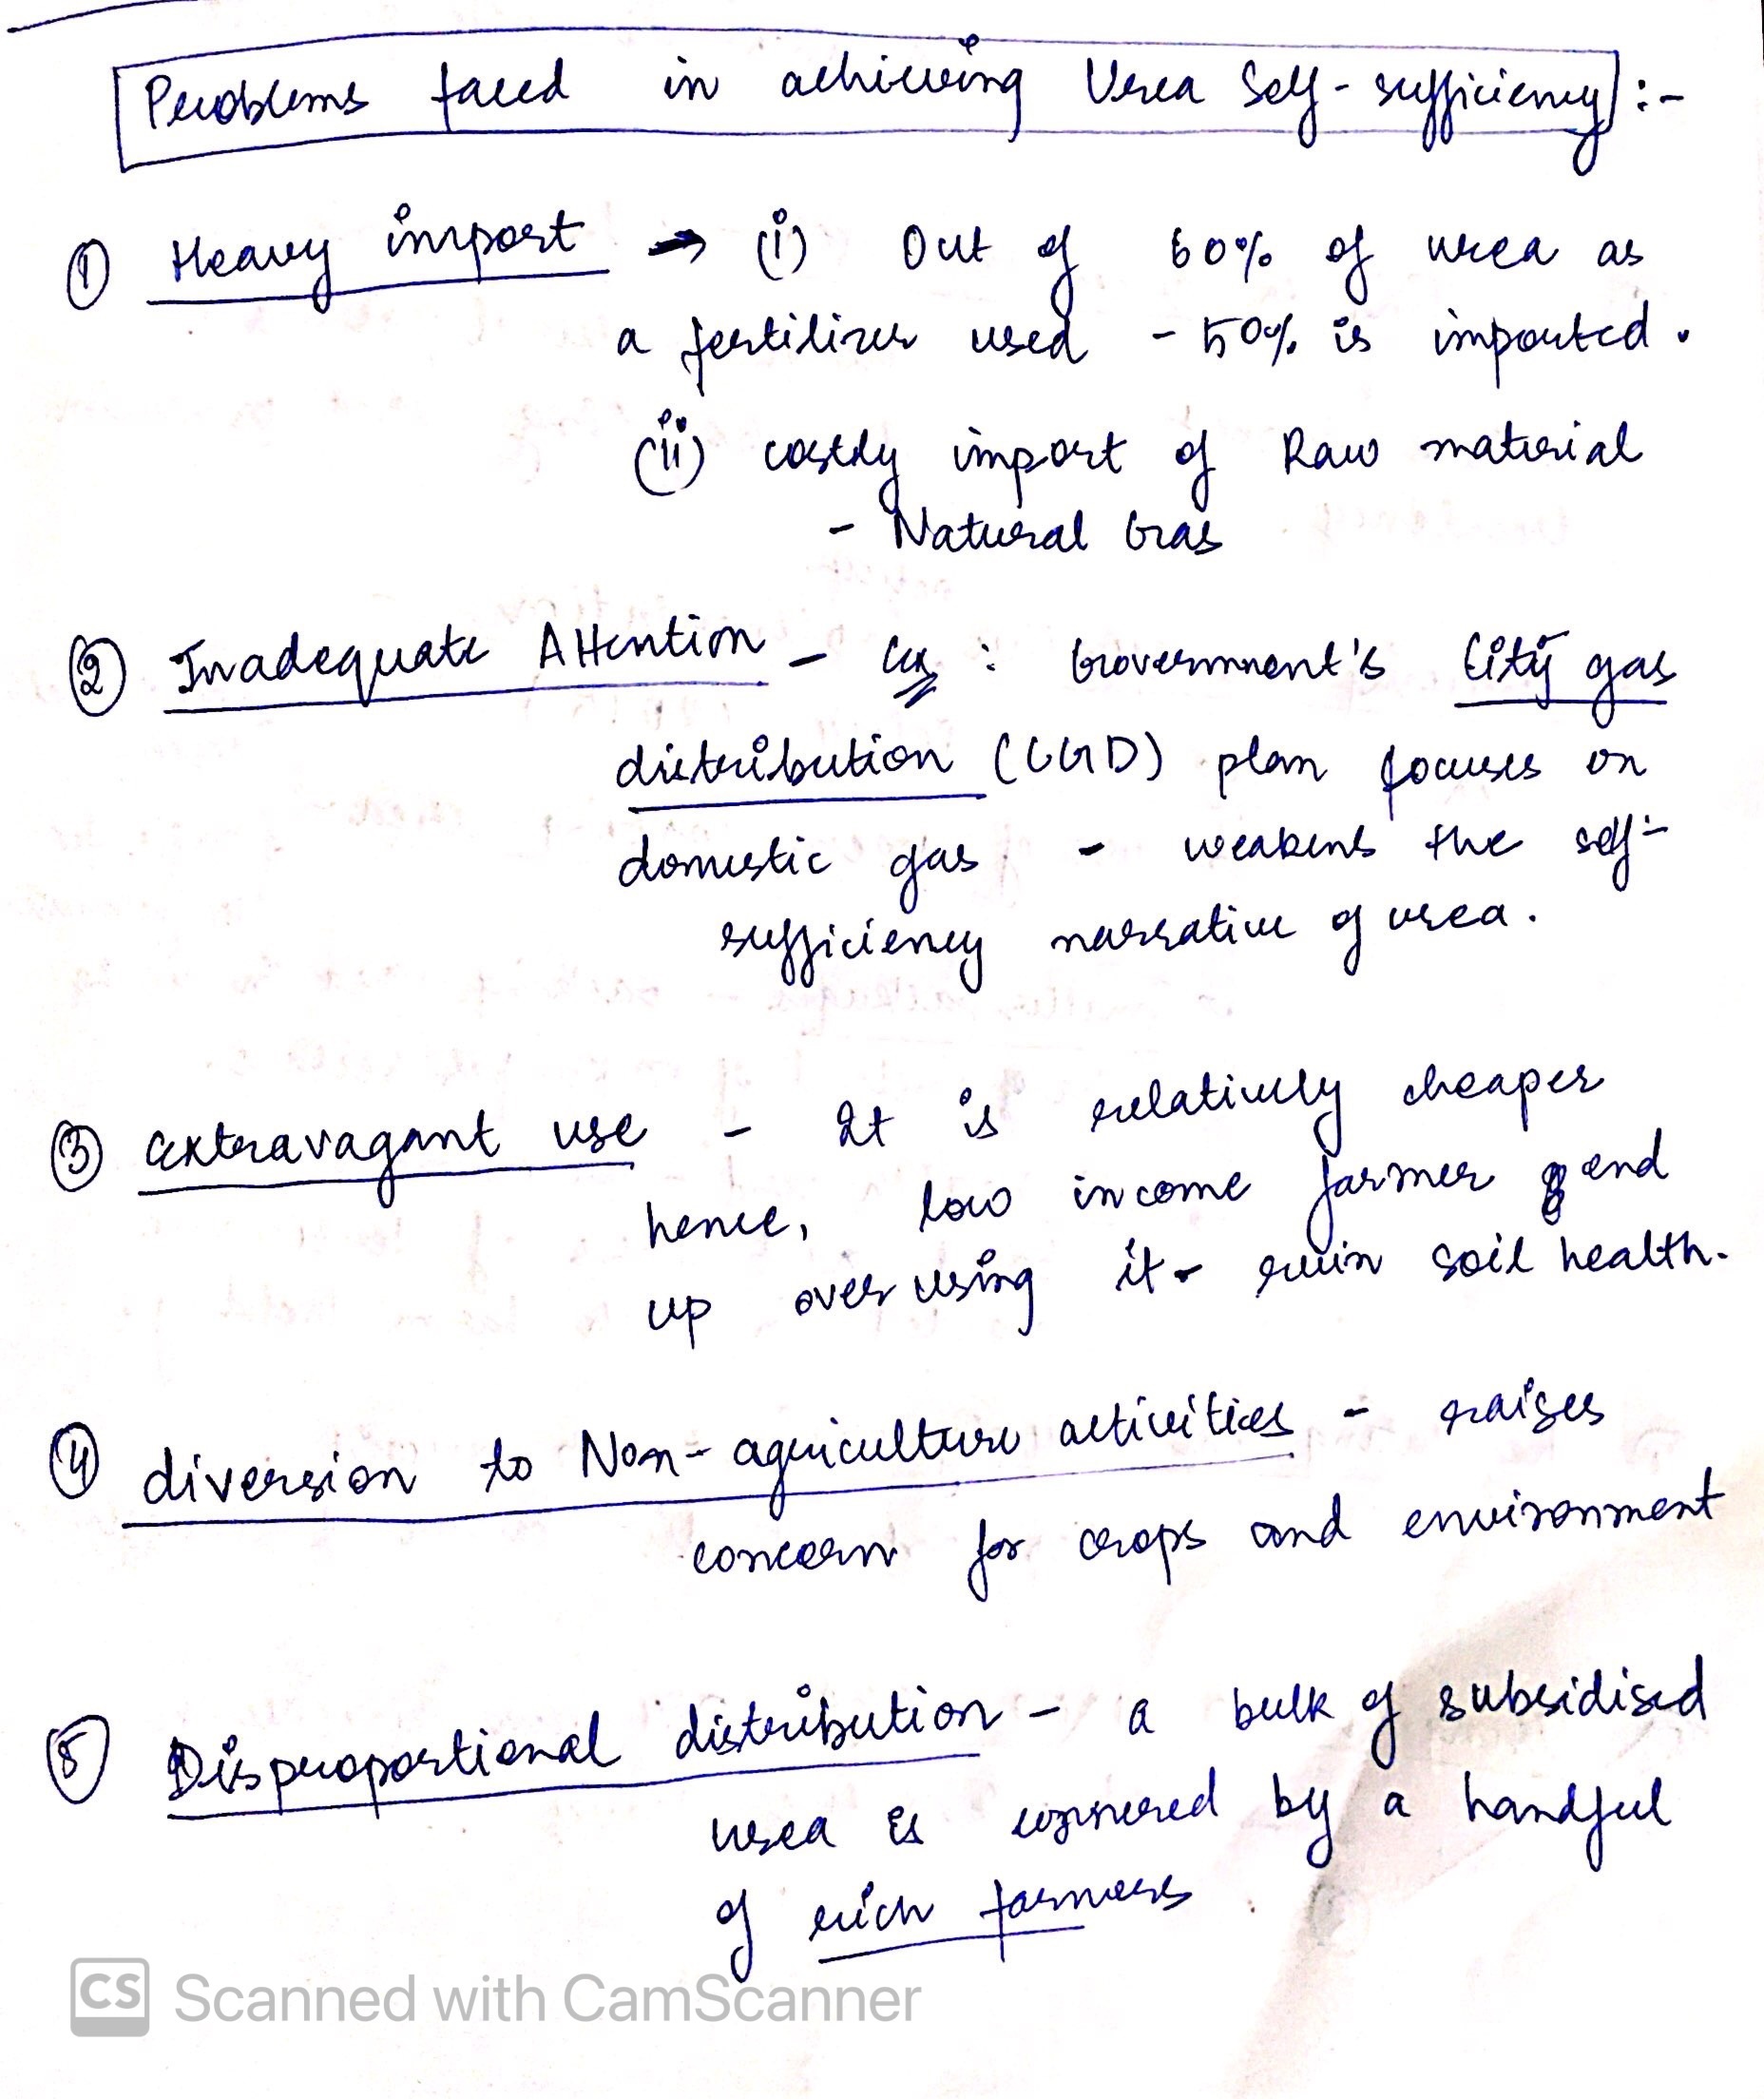 Problems faced in achieving Urea Self-sufficiency :-
① Heavy import → (i) Out of 60% of urea as
a fertilizer used - 50% is imported.
(ii) costly import of Raw material
- Natural Gas
② Inadequate Attention - Ex : Government's City gas
distribution (CGD) plan focuses on
domestic gas - weakens the self-
sufficiency narrative of urea.
③ Extravagant use - It is relatively cheaper
hence, low income farmer end
up over using it - ruin soil health.
④ diversion to Non-agriculture activities - raises
concern for crops and environment
⑤ Disproportional distribution - a bulk of subsidised
urea is cornered by a handful
of rich farmers
CS Scanned with CamScanner